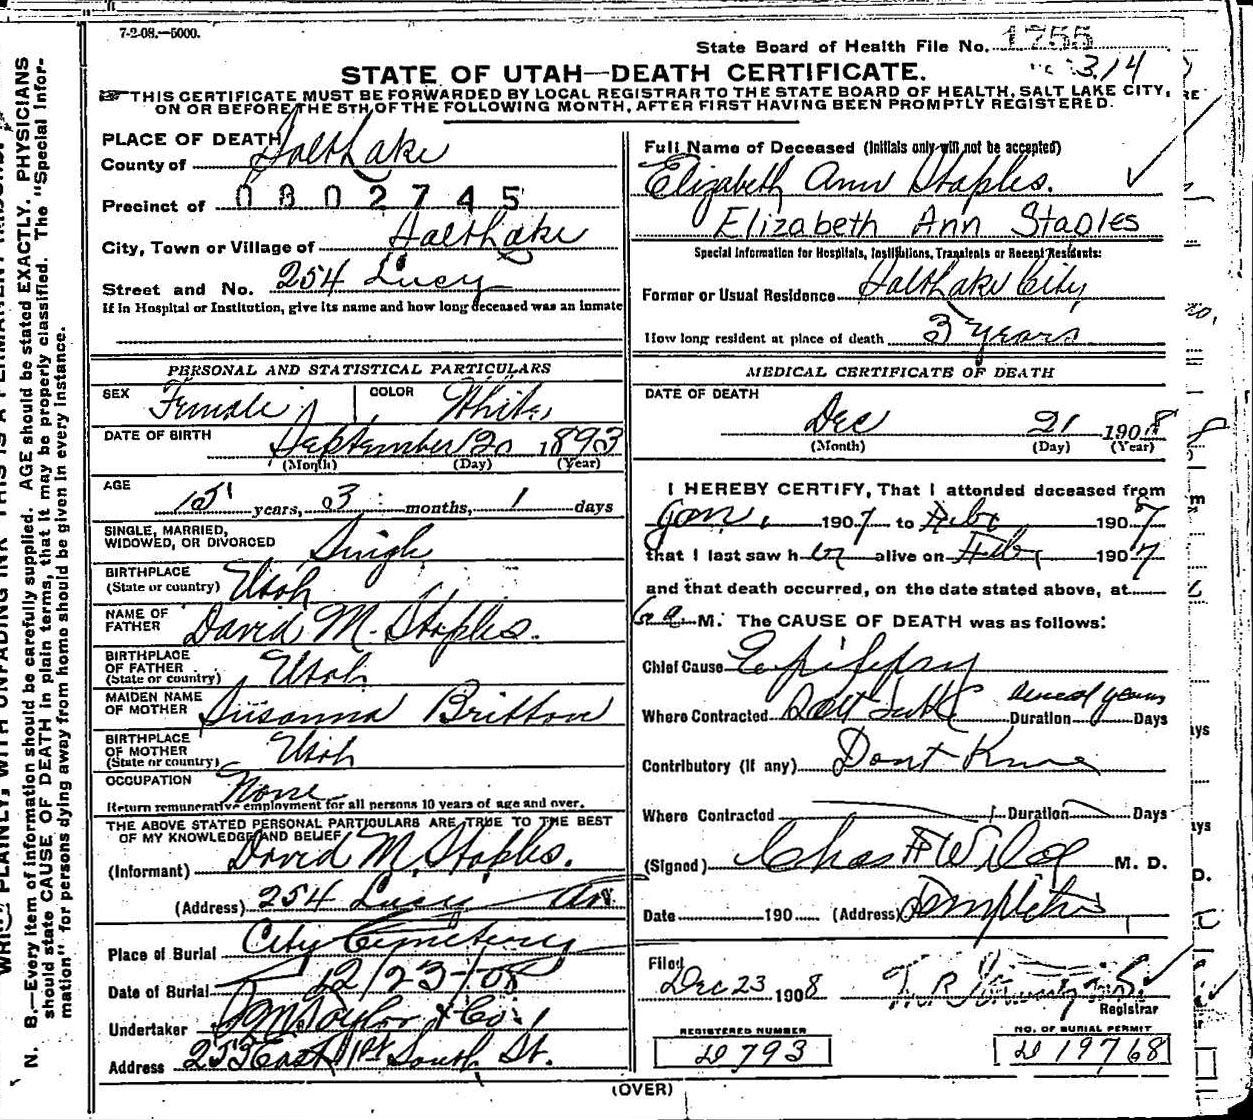 7-2-08.—5000.
State Board of Health File No. 1755
314
STATE OF UTAH—DEATH CERTIFICATE.
THIS CERTIFICATE MUST BE FORWARDED BY LOCAL REGISTRAR TO THE STATE BOARD OF HEALTH, SALT LAKE CITY,
ON OR BEFORE THE 5TH OF THE FOLLOWING MONTH, AFTER FIRST HAVING BEEN PROMPTLY REGISTERED.
PLACE OF DEATH
County of Salt Lake
Precinct of 0802745
City, Town or Village of Salt Lake
Street and No. 254 Lucy
If in Hospital or Institution, give its name and how long deceased was an inmate
Full Name of Deceased (Initials only will not be accepted)
Elizabeth Ann Staples.
Elizabeth Ann Staples
Special Information for Hospitals, Institutions, Transients or Recent Residents:
Former or Usual Residence Salt Lake City
How long resident at place of death 3 years
PERSONAL AND STATISTICAL PARTICULARS
SEX Female COLOR White
DATE OF BIRTH September 20 1893
(Month) (Day) (Year)
AGE
15 years, 03 months, 1 days
SINGLE, MARRIED,
WIDOWED, OR DIVORCED Single
BIRTHPLACE
(State or country) Utah
NAME OF
FATHER David M. Staples.
BIRTHPLACE
OF FATHER
(State or country) Utah
MAIDEN NAME
OF MOTHER Susanna Britton
BIRTHPLACE
OF MOTHER
(State or country) Utah
OCCUPATION None
Return remunerative employment for all persons 10 years of age and over.
THE ABOVE STATED PERSONAL PARTICULARS ARE TRUE TO THE BEST
OF MY KNOWLEDGE AND BELIEF
(Informant) David M. Staples.
(Address) 254 Lucy Av.
Place of Burial City Cemetery
Date of Burial 12/23/08
Undertaker Taylor & Co.
Address 252 East 1st South St.
MEDICAL CERTIFICATE OF DEATH
DATE OF DEATH
Dec 21 1908
(Month) (Day) (Year)
I HEREBY CERTIFY, That I attended deceased from
Jan. 1907 to Feb 1907
that I last saw her alive on Feb 1907
and that death occurred, on the date stated above, at
6 a. M. The CAUSE OF DEATH was as follows:
Chief Cause Epilepsy
Where Contracted Salt Lake Duration several years Days
Contributory (If any) Dont Know
Where Contracted Duration Days
(Signed) Chas F Wilcox M. D.
Date 190 (Address) Templeton
Filed
Dec 23 1908
Registrar
REGISTERED NUMBER
D 793
NO. OF BURIAL PERMIT
D 19768
(OVER)
N. B.—Every item of information should be carefully supplied. AGE should be stated EXACTLY. PHYSICIANS
should state CAUSE OF DEATH in plain terms, that it may be properly classified. The "Special Infor-
mation" for persons dying away from home should be given in every instance.